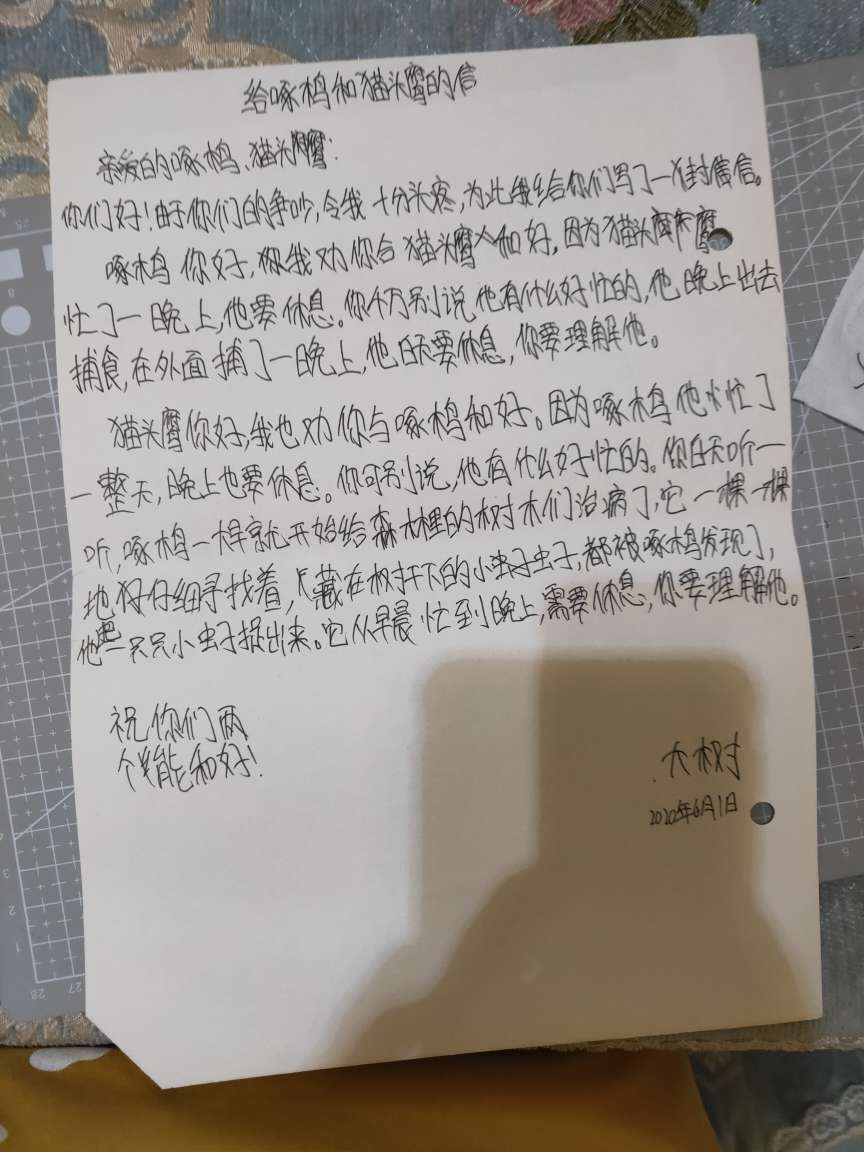 给啄木鸟和猫头鹰的信
亲爱的啄木鸟、猫头鹰:
你们好!由于你们的争吵,令我十分头疼,为此我给你们写了一封信。
啄木鸟你好,我劝你合猫头鹰和好,因为猫头鹰
忙了一晚上,他要休息。你千万别说他有什么好忙的,他晚上出去
捕食,在外面捕了一晚上,他白天要休息,你要理解他。
猫头鹰你好,我也劝你与啄木鸟和好。因为啄木鸟他忙了
一整天,晚上也要休息。你可别说,他有什么好忙的。你白天听一
听,啄木鸟一早就开始给森林里的树木们治病了,它一棵一棵
地仔仔细寻找着,藏在树干下的小虫子,都被啄木鸟发现了,
他把一只只小虫子捉出来。它从早晨忙到晚上,需要休息,你要理解他。
祝你们两
个能和好!
大树
2020年6月1日
28
27